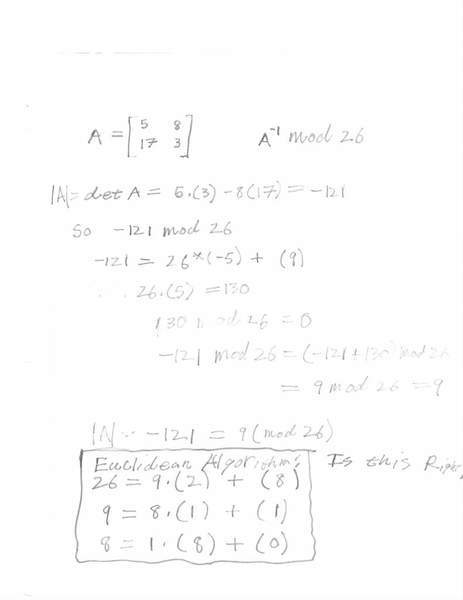 A = [5 8 A⁻¹ mod 26
17 3]
|A| = det A = 5.(3) - 8(17) = -121
So -121 mod 26
-121 = 26*(-5) + (9)
∴ 26.(5) = 130
130 mod 26 = 0
-121 mod 26 = (-121 + 130) mod 26
= 9 mod 26 = 9
-121 = 9 (mod 26)
Euclidean Algorithm: Is this Right,
26 = 9.(2) + (8)
9 = 8.(1) + (1)
8 = 1.(8) + (0)